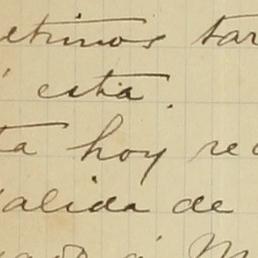 etimos tar
esta.
ta hoy rec
salida de